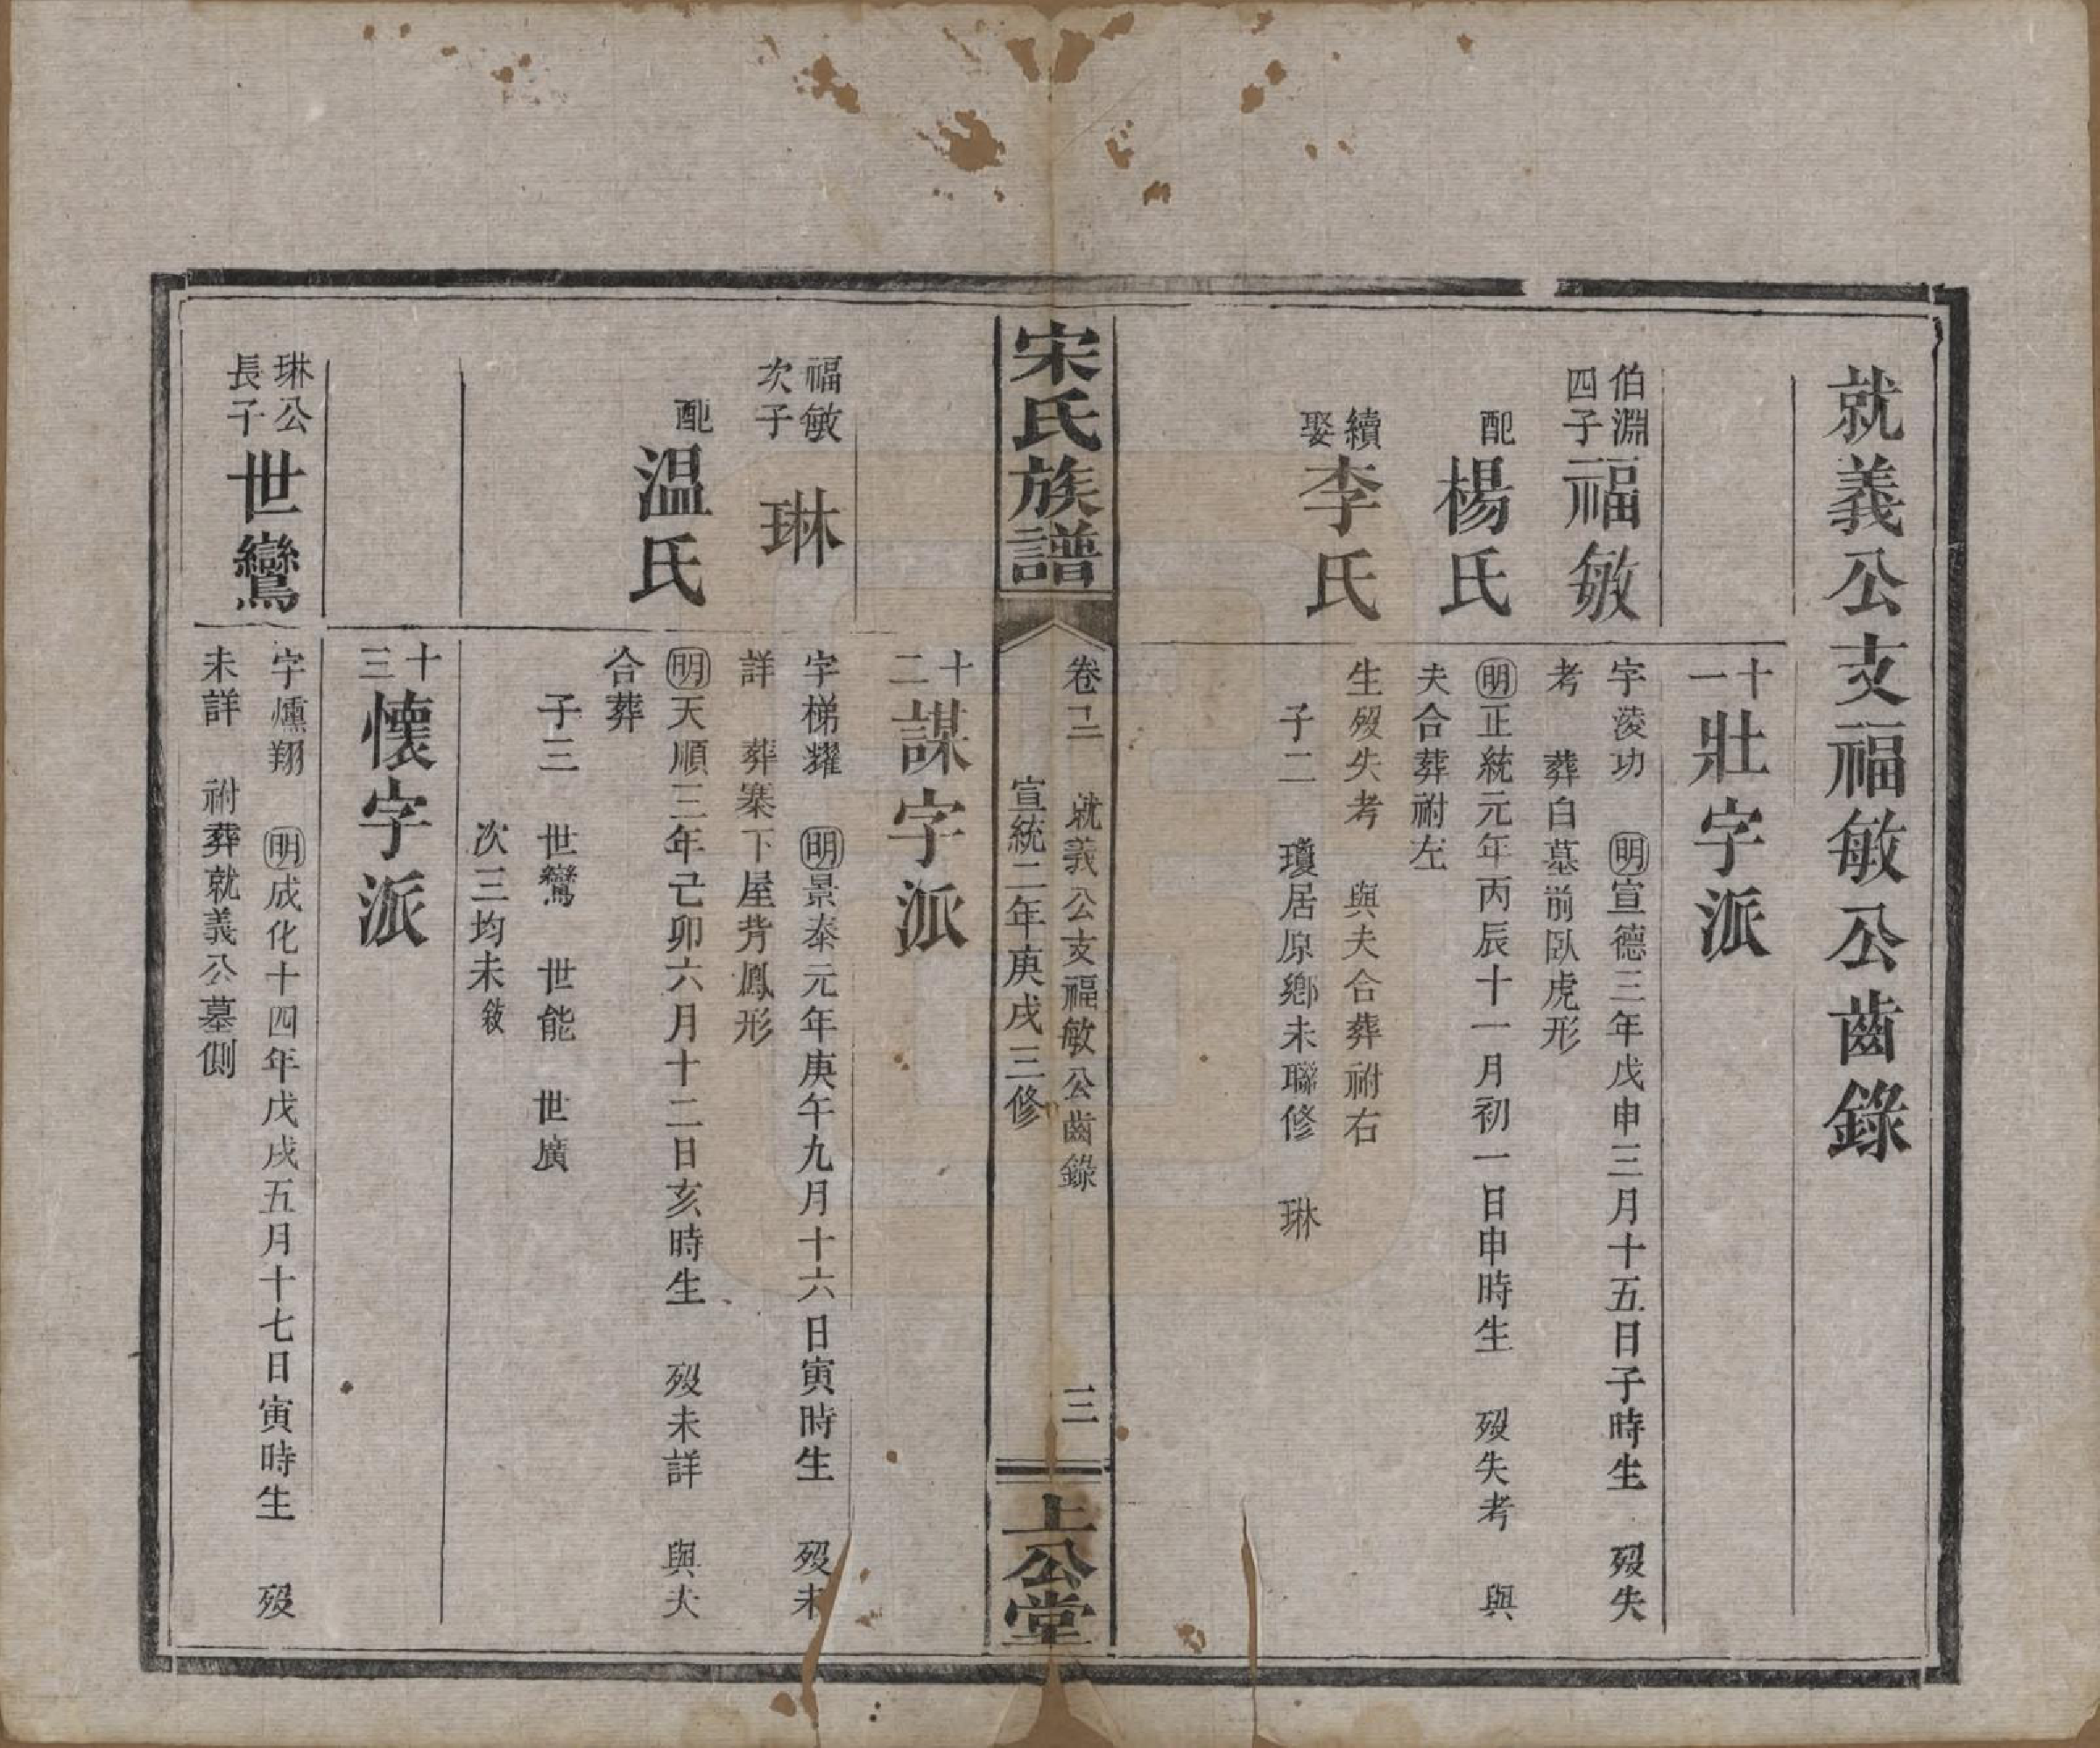 就義公支福敏公齒錄
十一壯字派
伯淵四子福敏
字淩功　明宣德三年戊申三月十五日子時生　歿失
考　葬白墓前臥虎形
配楊氏
明正統元年丙辰十一月初一日申時生　歿失考　與
夫合葬祔左
續娶李氏
生歿失考　與夫合葬祔右
子二　瓊居原鄉未聯修　琳
宋氏族譜
卷二　就義公支福敏公齒錄　三
宣統二年庚戌三修
上公堂
十二謀字派
福敏次子琳
字梯耀　明景泰元年庚午九月十六日寅時生　歿未
詳　葬寨下屋背鳳形
配温氏
明天順三年己卯六月十二日亥時生　歿未詳　與夫
合葬
子三　世鸞　世能　世廣
次三均未敘
十三懷字派
琳公長子世鸞
字燻翔　明成化十四年戊戌五月十七日寅時生　歿
未詳　祔葬就義公墓側